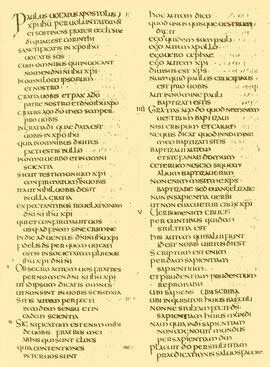 PAULUS UOCATUS APOSTOLUS
XPI IHU PER UOLUNTATEM DI
ET SOSTENES FRATER ECCLESIAE
DI QUAE EST CORINTHI
SANCTIFICATIS IN XPO IHU
UOCATIS SCIS
CUM OMNIBUS QUI INUOCANT
NOMEN DNI NI IHU XPI
IN OMNI LOCO IPSORUM
ET NOSTRO
GRATIA UOBIS ET PAX A DO
PATRE NOSTRO ET DNO IHU XPO
GRATIAS AGO DO MEO SEMPER
PRO UOBIS
IN GRATIA DI QUAE DATA EST
UOBIS IN XPO IHU
QUIA IN OMNIBUS DIUITES
FACTI ESTIS IN ILLO
IN OMNI UERBO ET IN OMNI
SCIENTIA
SICUT TESTIMONIUM XPI
CONFIRMATUM EST IN UOBIS
ITA UT NIHIL UOBIS DESIT
IN ULLA GRATIA
EXPECTANTIBUS REUELATIONEM
DNI NI IHU XPI
QUI ET CONFIRMABIT UOS
USQUE AD FINEM SINE CRIMINE
IN DIE ADUENTUS DNI NI IHU XPI
FIDELIS DS PER QUEM UOCATI
ESTIS IN SOCIETATEM FILII EIUS
IHU XPI DNI NI
OBSECRO AUTEM UOS FRATRES
PER NOMEN DNI NI IHU XPI
UT ID IPSUM DICATIS OMNES
ET NON SINT IN UOBIS SCISMATA
SITIS AUTEM PERFECTI
IN EODEM SENSU ET IN
EADEM SCIENTIA
SIGNIFICATUM EST ENIM MIHI
DE UOBIS FRATRES MEI
AB HIS QUI SUNT CLOES
QUIA CONTENTIONES
INTER UOS SUNT
HOC AUTEM DICO
QUOD UNUSQUISQUE UESTRUM
DICIT
EGO QUIDEM SUM PAULI
EGO AUTEM APOLLO
EGO UERO CEPHAE
EGO AUTEM XPI
DIUISUS EST XPS
NUMQUID PAULUS CRUCIFIXUS
EST PRO UOBIS
AUT IN NOMINE PAULI
BAPTIZATI ESTIS
GRATIAS AGO DO QUOD NEMINEM
UESTRUM BAPTIZAUI
NISI CRISPUM ET GAIUM
NE QUIS DICAT QUOD IN NOMINE
MEO BAPTIZATI ESTIS
BAPTIZAUI AUTEM
ET STEPHANAE DOMUM
CETERUM NESCIO SI QUEM
ALIUM BAPTIZAUERIM
NON ENIM MISIT ME XPS
BAPTIZARE SED EUANGELIZARE
NON IN SAPIENTIA UERBI
UT NON EUACUETUR CRUX XPI
UERBUM ENIM CRUCIS
PEREUNTIBUS QUIDEM
STULTITIA EST
HIS AUTEM QUI SALUI FIUNT
ID EST NOBIS UIRTUS DI EST
SCRIPTUM EST ENIM
PERDAM SAPIENTIAM
SAPIENTIUM
ET PRUDENTIAM PRUDENTIUM
REPROBABO
UBI SAPIENS UBI SCRIBA
UBI INQUISITOR HUIUS SAECULI
NONNE STULTAM FECIT DS
SAPIENTIAM HUIUS MUNDI
NAM QUIA IN DI SAPIENTIA
NON COGNOUIT MUNDUS
PER SAPIENTIAM DM
PLACUIT DO PER STULTITIAM
PRAEDICATIONIS SALUOS FACERE